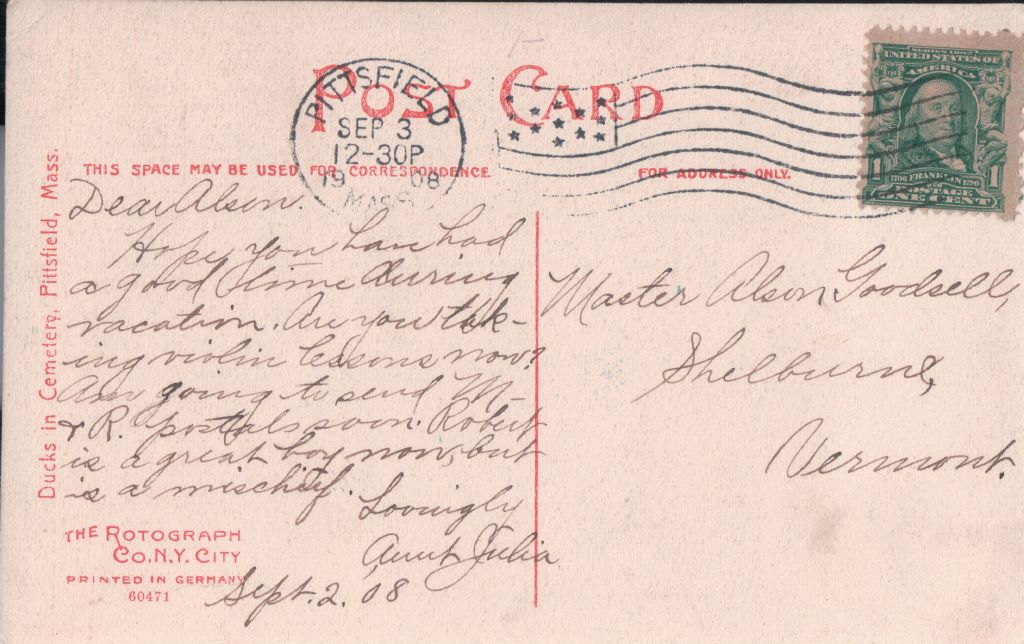 POST CARD
PITTSFIELD
SEP 3
12-30P
1908
MASS.
SERIES 1902
UNITED STATES OF
AMERICA
1706 FRANKLIN 1790
1 1
POSTAGE
ONE CENT
THIS SPACE MAY BE USED FOR CORRESPONDENCE.
FOR ADDRESS ONLY.
Ducks in Cemetery, Pittsfield, Mass.
Dear Alson.
Hope you have had
a good time during
vacation. Are you tak-
ing violin lessons now?
Am going to send M-
& R. postals soon. Robert
is a great boy now, but
is a mischief.
Lovingly
Aunt Julia
Sept. 2. 08
Master Alson Goodsell,
Shelburne,
Vermont.
THE ROTOGRAPH
CO. N.Y. CITY
PRINTED IN GERMANY
60471